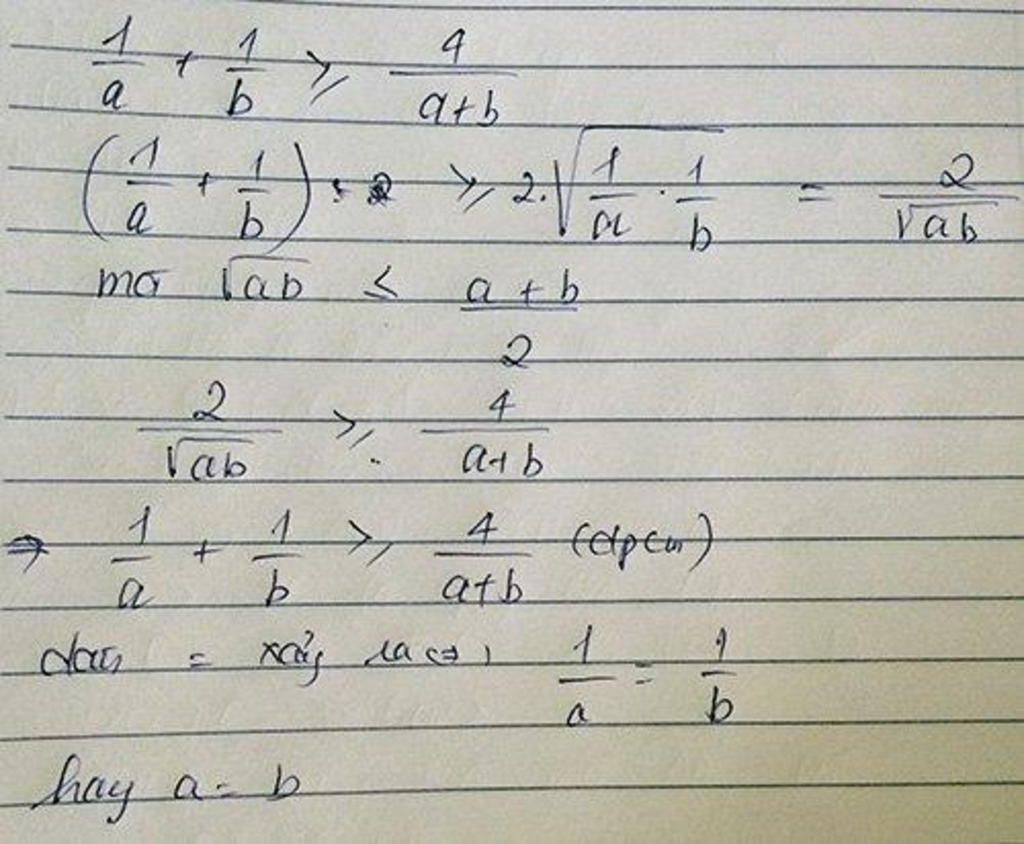 1/a + 1/b ≥ 4/(a+b)
(1/a + 1/b) ≥ 2.√(1/a · 1/b) = 2/√(ab)
mà √(ab) ≤ (a + b)/2
2/√(ab) ≥ 4/(a+b)
⇒ 1/a + 1/b ≥ 4/(a+b) (đpcm)
dấu = xảy ra ⇔ 1/a = 1/b
hay a = b